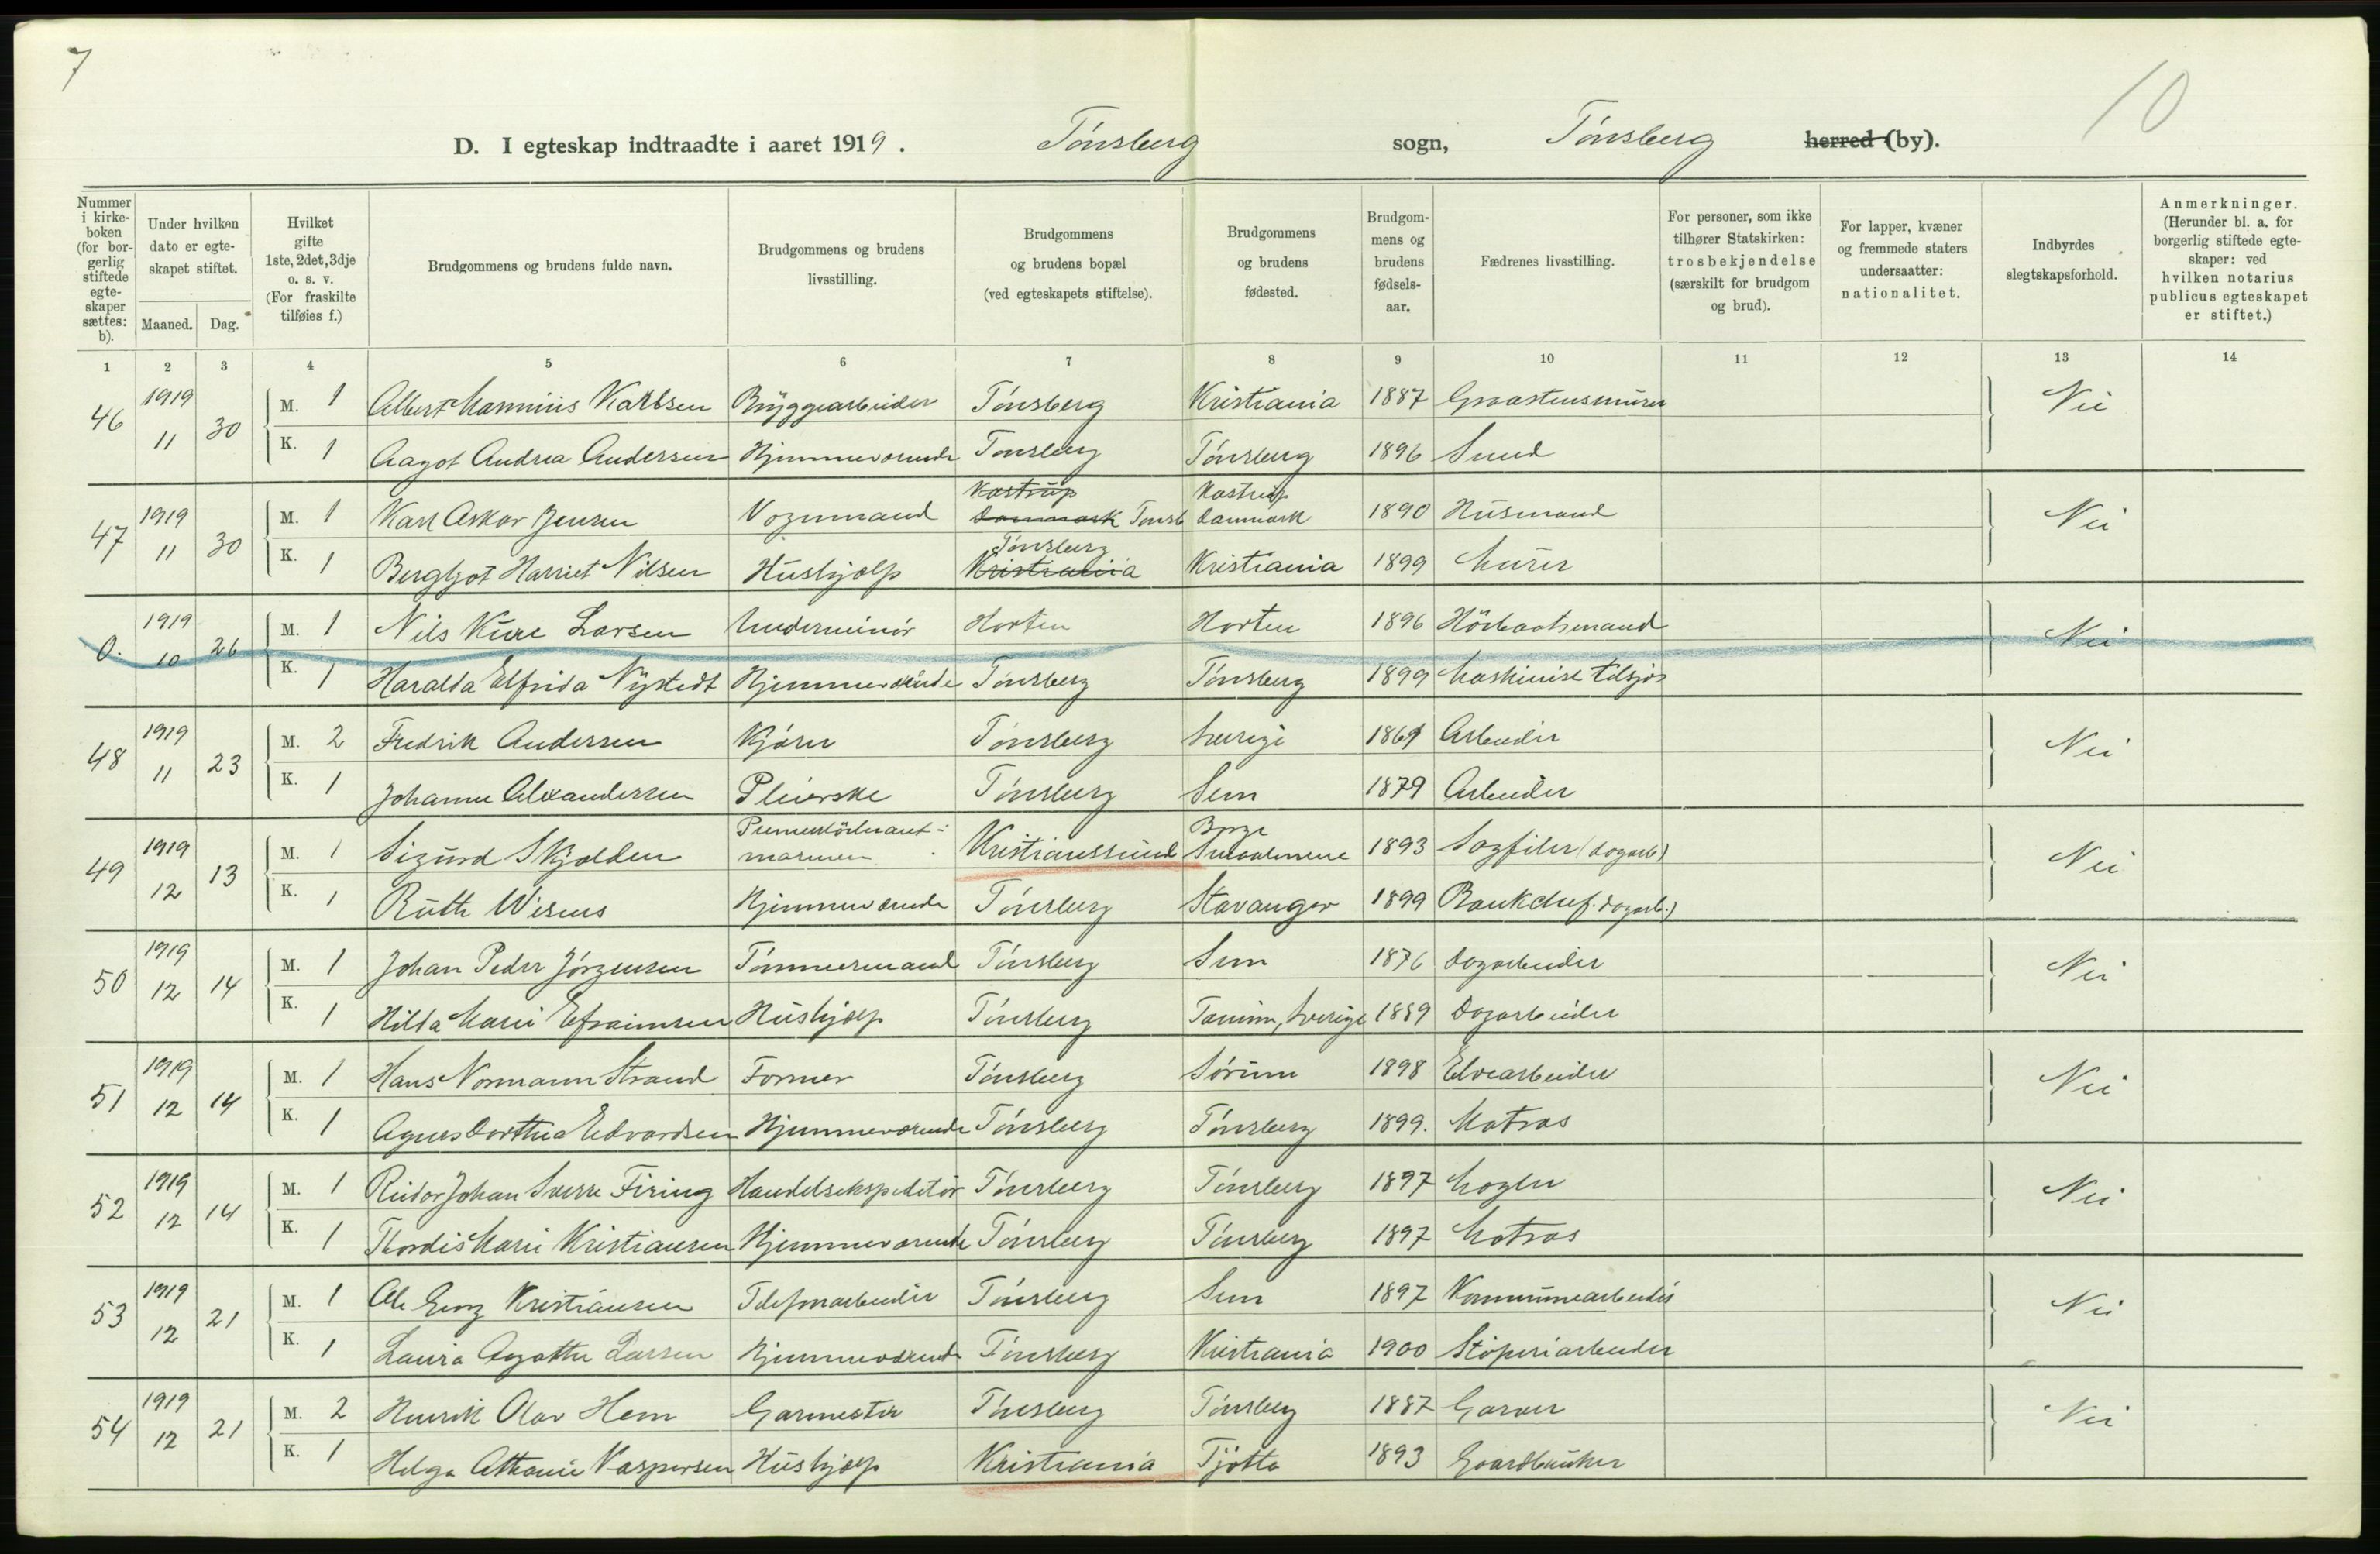 7
10
D. I egteskap indtraadte i aaret 1919. Tønsberg sogn, Tønsberg herred (by).
Nummer i kirkeboken (for borgerlig stiftede egteskaper sættes: b).
Under hvilken dato er egteskapet stiftet.
Maaned. Dag.
Hvilket gifte 1ste, 2det, 3dje o. s. v. (For fraskilte tilføies f.)
Brudgommens og brudens fulde navn.
Brudgommens og brudens livsstilling.
Brudgommens og brudens bopæl (ved egteskapets stiftelse).
Brudgommens og brudens fødested.
Brudgommens og brudens fødselsaar.
Fædrenes livsstilling.
For personer, som ikke tilhører Statskirken: trosbekjendelse (særskilt for brudgom og brud).
For lapper, kvæner og fremmede staters undersaatter: nationalitet.
Indbyrdes slegtskapsforhold.
Anmerkninger. (Herunder bl. a. for borgerlig stiftede egteskaper: ved hvilken notarius publicus egteskapet er stiftet.)
1 2 3 4 5 6 7 8 9 10 11 12 13 14
46 1919 11 30 M. 1 Albert Karlsen Bryggearbeider Tønsberg Kristiania 1887 Graastensmurer Nei
K. 1 Aagot Andrea Andersen Hjemmeværende Tønsberg Tønsberg 1896 Smed
47 1919 11 30 M. 1 Karl Oskar Jensen Vognmand Kastrup Danmark Tønsb Kastrup Danmark 1890 Husmand Nei
K. 1 Bergljot Harriet Nilsen Hushjælp Tønsberg Kristiania Kristiania 1899 Murer
0. 1919 10 26 M. 1 Nils Kure Larsen Underminør Horten Horten 1896 Nei
K. 1 Haralda Elfrida Nystedt Hjemmeværende Tønsberg Tønsberg 1899 Maskinist tilsjøs
48 1919 11 23 M. 2 Fredrik Andersen Kjører Tønsberg Sverige 1861 Arbeider Nei
K. 1 Johanne Alexandersen Pleierske Tønsberg Sem 1879 Arbeider
49 1919 12 13 M. 1 Sigurd Skjolden Premierløitnant i marinen Kristianssund Borge Smaalenene 1893 Sagfiler (dagarb) Nei
K. 1 Ruth Hjemmeværende Tønsberg Stavanger 1899 Bankchef. dagarb.)
50 1919 12 14 M. 1 Johan Peder Jørgensen Tømmermand Tønsberg Sem 1876 Dagarbeider Nei
K. 1 Hilda Marie Efraimsen Hushjælp Tønsberg Tanum, Sverige 1889 Dagarbeider
51 1919 12 14 M. 1 Hans Normann Strand Former Tønsberg Sørum 1898 Elvearbeider Nei
K. 1 Agnes Dorthea Edvardsen Hjemmeværende Tønsberg Tønsberg 1899. Matros
52 1919 12 14 M. 1 Reidar Johan Sverre Firing Handelsekspeditør Tønsberg Tønsberg 1897 Mægler Nei
K. 1 Thordis Marie Kristiansen Hjemmeværende Tønsberg Tønsberg 1897 Matros
53 1919 12 21 M. 1 Ole Georg Kristiansen Telefonarbeider Tønsberg Sem 1897 Kommunearbeider Nei
K. 1 Laura Agathe Larsen Hjemmeværende Tønsberg Kristiania 1900 Støperiarbeider
54 1919 12 21 M. 2 Henrik Olav Hem Garmester Tønsberg Tønsberg 1887 Garver Nei
K. 1 Helga Kaspersen Hushjælp Kristiania Tjøtta 1893 Gaardbruker